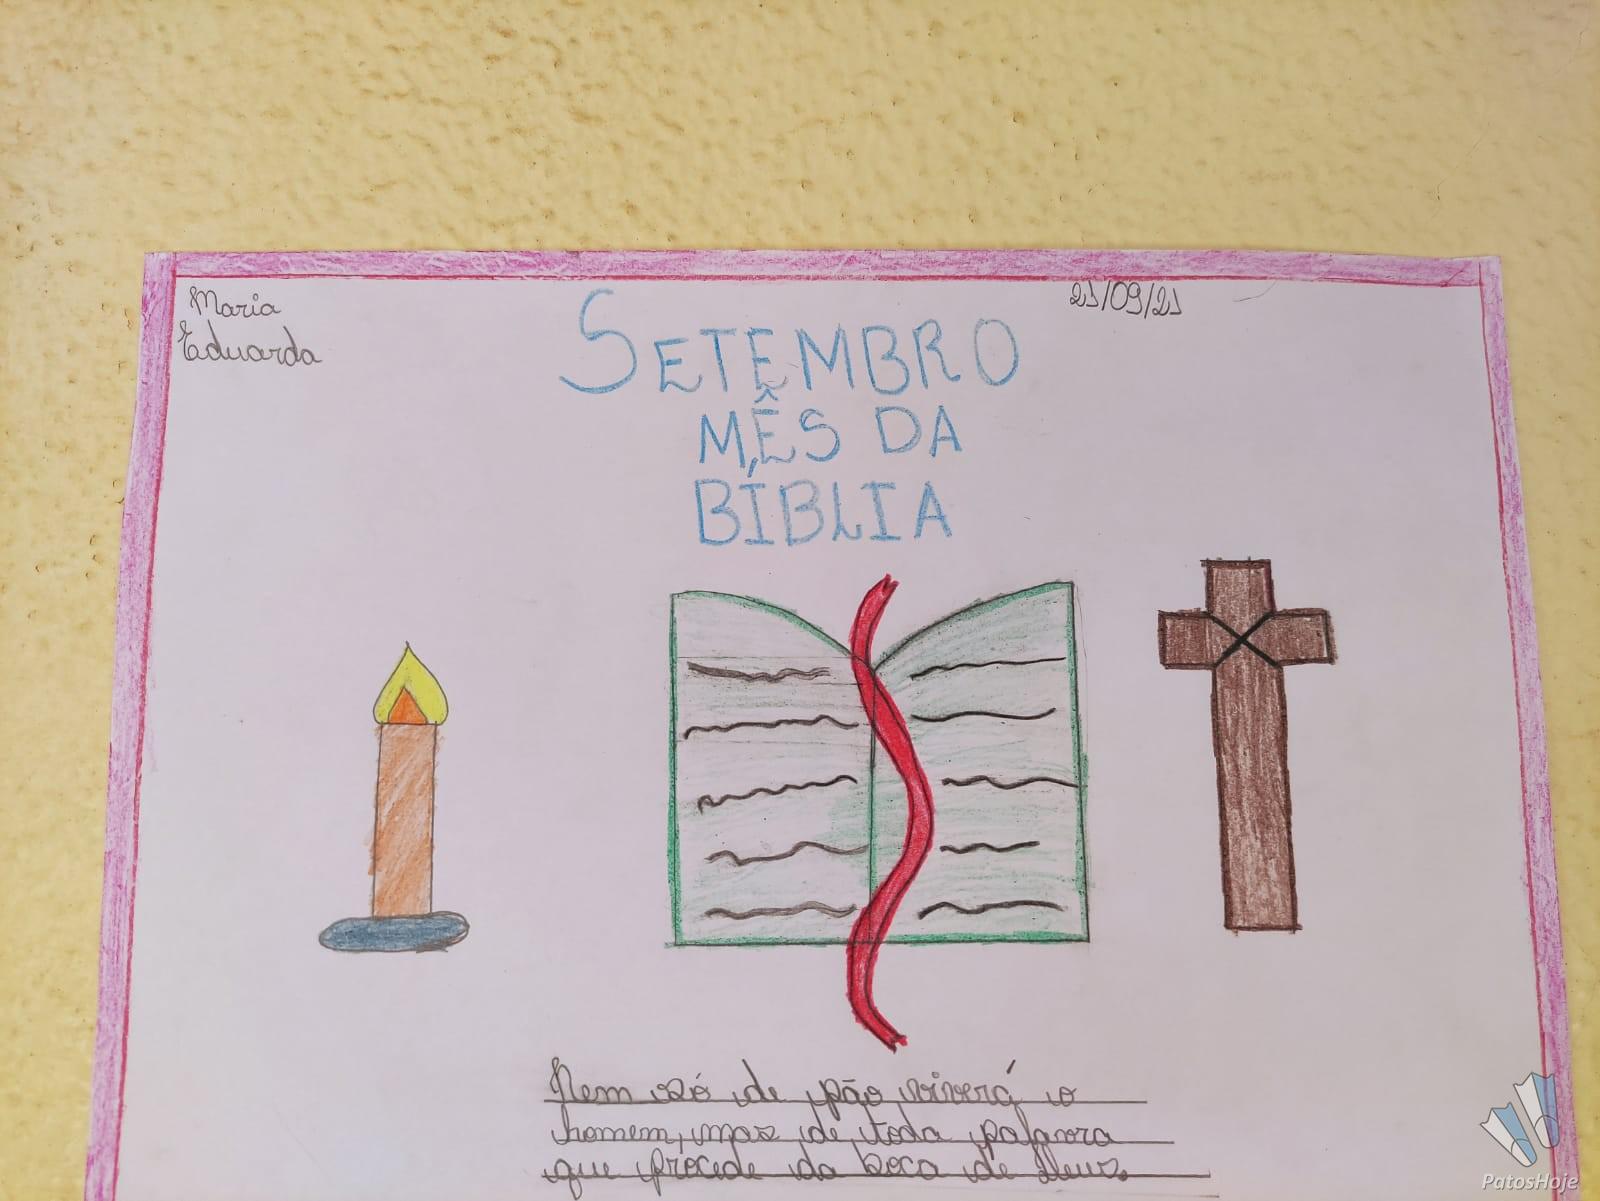 Maria
Eduarda
21/09/21
SETEMBRO
MÊS DA
BÍBLIA
Nem só de pão viverá o
homem, mas de toda palavra
que procede da boca de Deus
PatosHoje